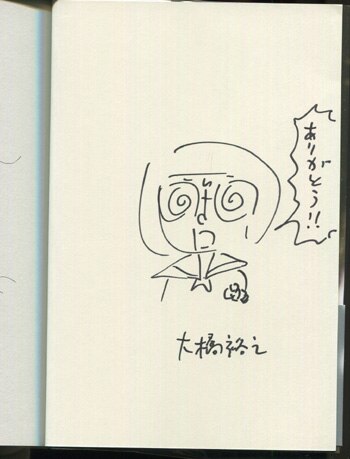 ありがとう!!
大橋裕之